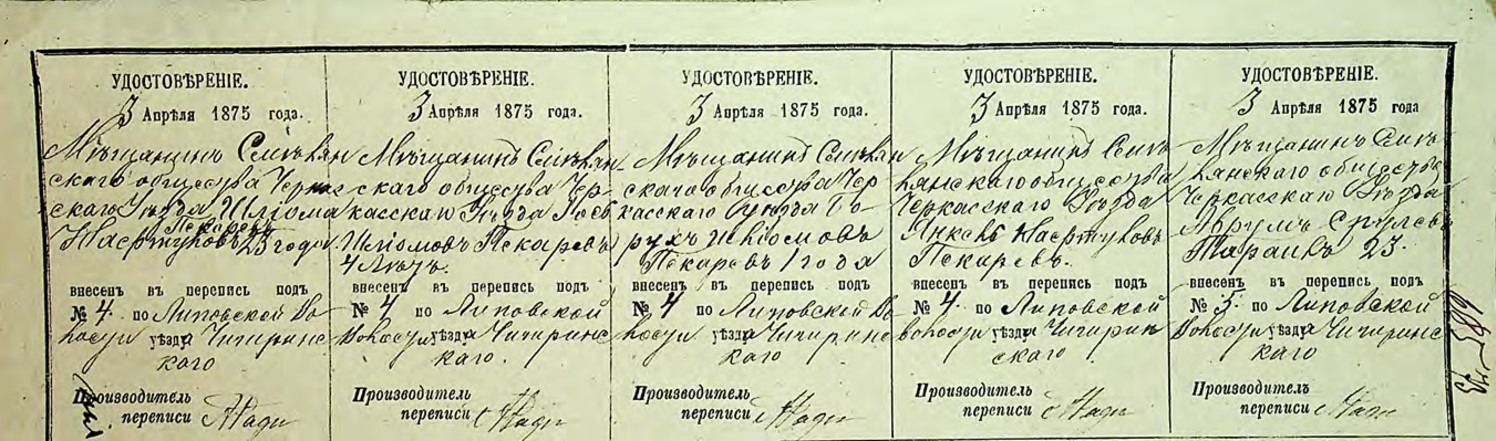 УДОСТОВѢРЕНІЕ.
3 Апрѣля 1875 года.
Мѣщанинъ Смѣлян
скаго общества Черкас
скаго Уѣзда Шліома
Пекаревъ
23 года
внесенъ въ перепись подъ
№ 4. по Липовской Во
лости уѣзда Чигиринс
каго
Производитель
переписи
УДОСТОВѢРЕНІЕ.
3 Апрѣля 1875 года.
Мѣщанинъ Смѣлян-
скаго общества Чер
касскаго Уѣзда Іосъ
Шліомовъ Пекаревъ
4 лѣтъ.
внесенъ въ перепись подъ
№ 4 по Липовской
Волости уѣзда Чигиринс
каго.
Производитель
переписи
УДОСТОВѢРЕНІЕ.
3 Апрѣля 1875 года.
Мѣщанинъ Смѣлян
скаго общества Чер
касскаго Уѣзда Бо
рухъ Шліомовъ
Пекаревъ 1 года
внесенъ въ перепись подъ
№ 4 по Липовской Во
лости уѣзда Чигиринс
каго
Производитель
переписи
УДОСТОВѢРЕНІЕ.
3 Апрѣля 1875 года.
Мѣщанинъ Смѣ
лянскаго общества
Черкасскаго Уѣзда
Янкель Нафтуловъ
Пекаревъ.
внесенъ въ перепись подъ
№ 4. по Липовской
волости уѣзда Чигирин
скаго
Производитель
переписи
УДОСТОВѢРЕНІЕ.
3 Апрѣля 1875 года
Мѣщанинъ Смѣ
лянскаго общества
Черкасскаго Уѣзда
Аврумъ Срулевъ
23.
внесенъ въ перепись подъ
№ 5. по Липовской
Волости уѣзда Чигиринс
каго
Производитель
переписи